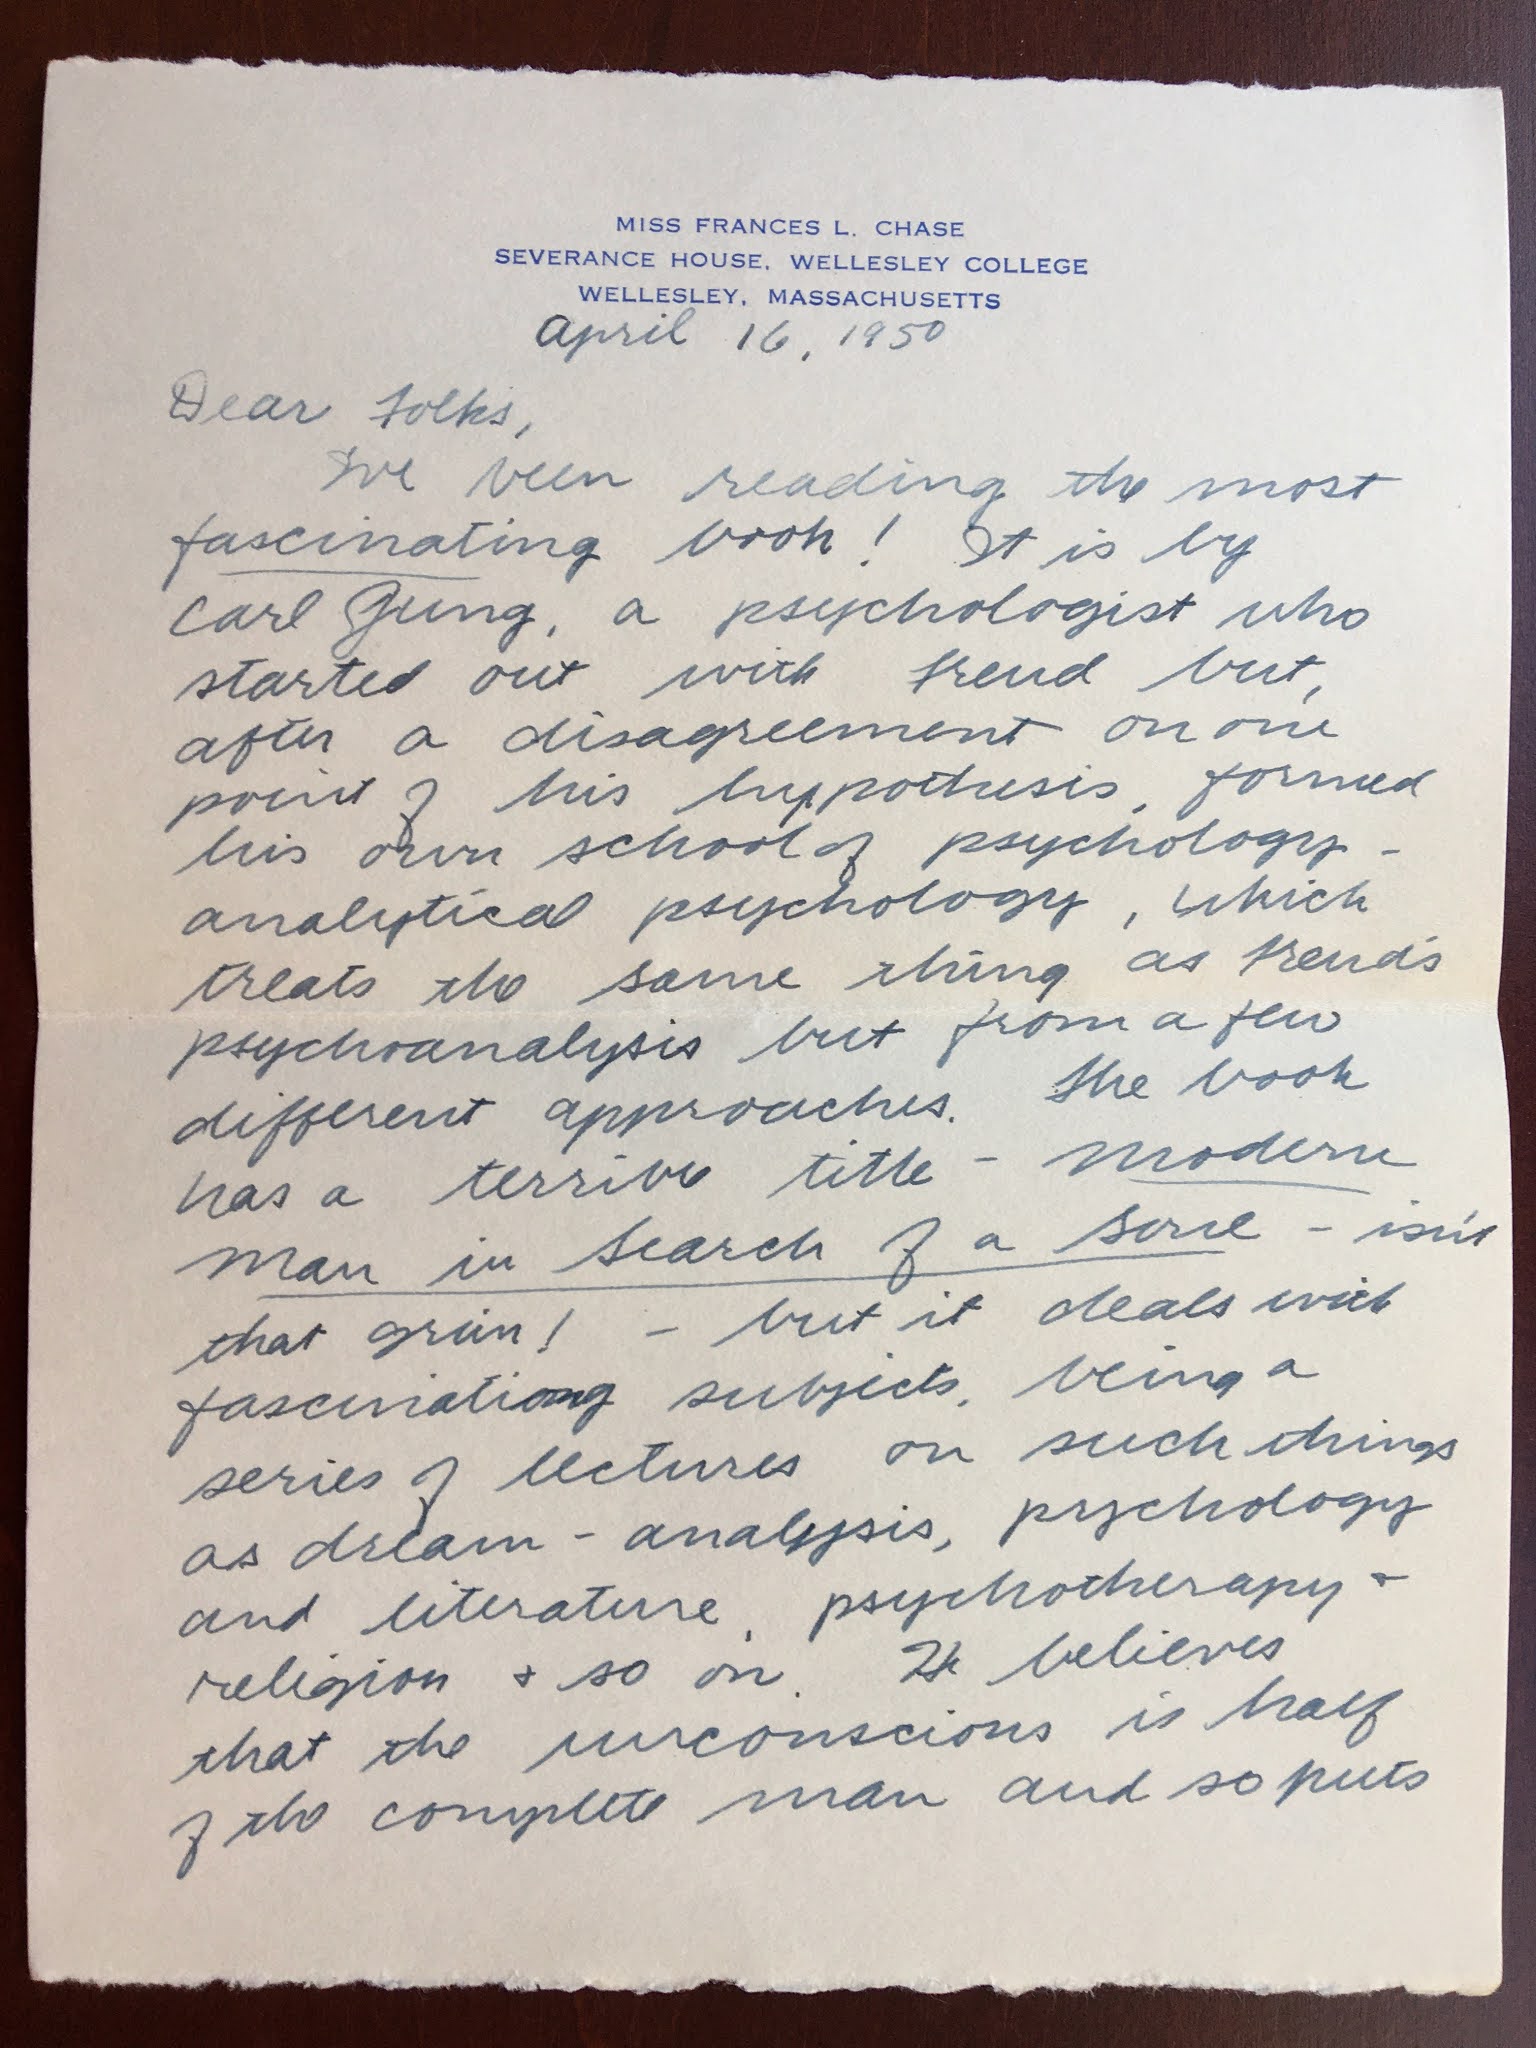 MISS FRANCES L. CHASE
SEVERANCE HOUSE, WELLESLEY COLLEGE
WELLESLEY, MASSACHUSETTS
April 16, 1950
Dear Folks,
I've been reading the most
fascinating book! It is by
Carl Jung, a psychologist who
started out with Freud but,
after a disagreement on one
point of his hypothesis, formed
his own school of psychology -
analytical psychology, which
treats the same thing as Freud's
psychoanalysis but from a few
different approaches. The book
has a terrible title - Modern
Man in Search of a Soul - isn't
that grim! - but it deals with
fascinating subjects, being a
series of lectures on such things
as dream-analysis, psychology
and literature, psychotherapy +
religion + so on. He believes
that the unconscious is half
of the complete man and so puts